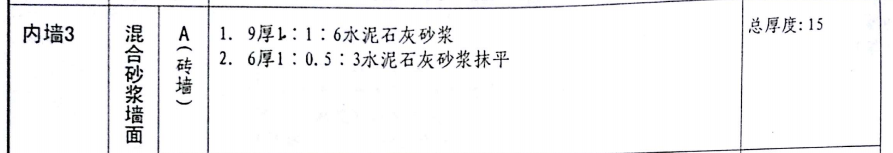 内墙3
混合砂浆墙面
A(砖墙)
1. 9厚1:1:6水泥石灰砂浆
2. 6厚1:0.5:3水泥石灰砂浆抹平
总厚度:15